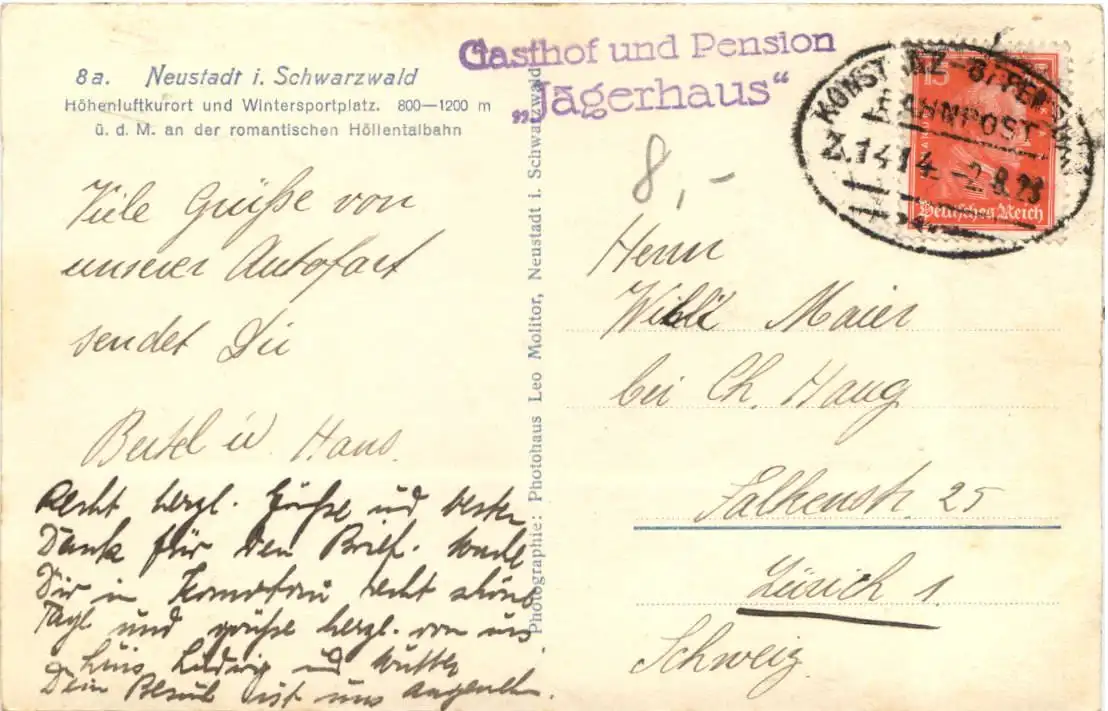 8a. Neustadt i. Schwarzwald
Höhenluftkurort und Wintersportplatz. 800—1200 m
ü. d. M. an der romantischen Höllentalbahn
Gasthof und Pension
„Jägerhaus“
BAHNPOST
Z.1414
Deutsches Reich
8,-
Viele Grüße von
unserer Autofart
sendet Dir
Hans.
Recht herzl. Grüße und besten
Dank für den Brief.
Dir in recht schöne
Tage und grüße herzl. von uns
Ludwig und Mutter
Dein Besuch ist uns angenehm.
Photographie: Photohaus Leo Molitor, Neustadt i. Schwarzwald
Herrn
Willi Maier
bei Ch. Haug
Falkenstr. 25
Zürich 1.
Schweiz